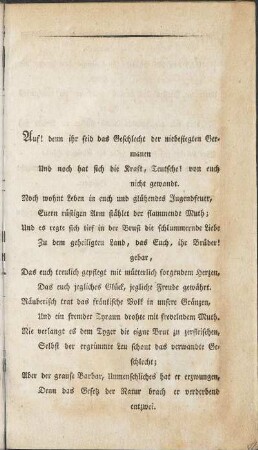 Auf! denn ihr seid das Geschlecht der niebesiegten Ger-
manen
Und noch hat sich die Kraft, Teutsche! von euch
nicht gewandt.
Noch wohnt Leben in euch und glühendes Jugendfeuer,
Euren rüstigen Arm stählet der flammende Muth;
Und es regte sich tief in der Brust die schlummernde Liebe
Zu dem geheiligten Land, das Euch, ihr Brüder!
gebar,
Das euch treulich gepflegt mit mütterlich sorgendem Herzen,
Das euch jegliches Glück, jegliche Freude gewährt.
Räuberisch trat das fränkische Volk in unsre Gränzen,
Und ein fremder Tyrann drohte mit frevelndem Muth.
Nie verlangt es dem Tyger die eigne Brut zu zerfleischen,
Selbst der ergrimmte Leu schont das verwandte Ge-
schlecht;
Aber der grause Barbar, Unmenschliches hat er erzwungen,
Denn das Gesetz der Natur brach er verderbend
entzwei.